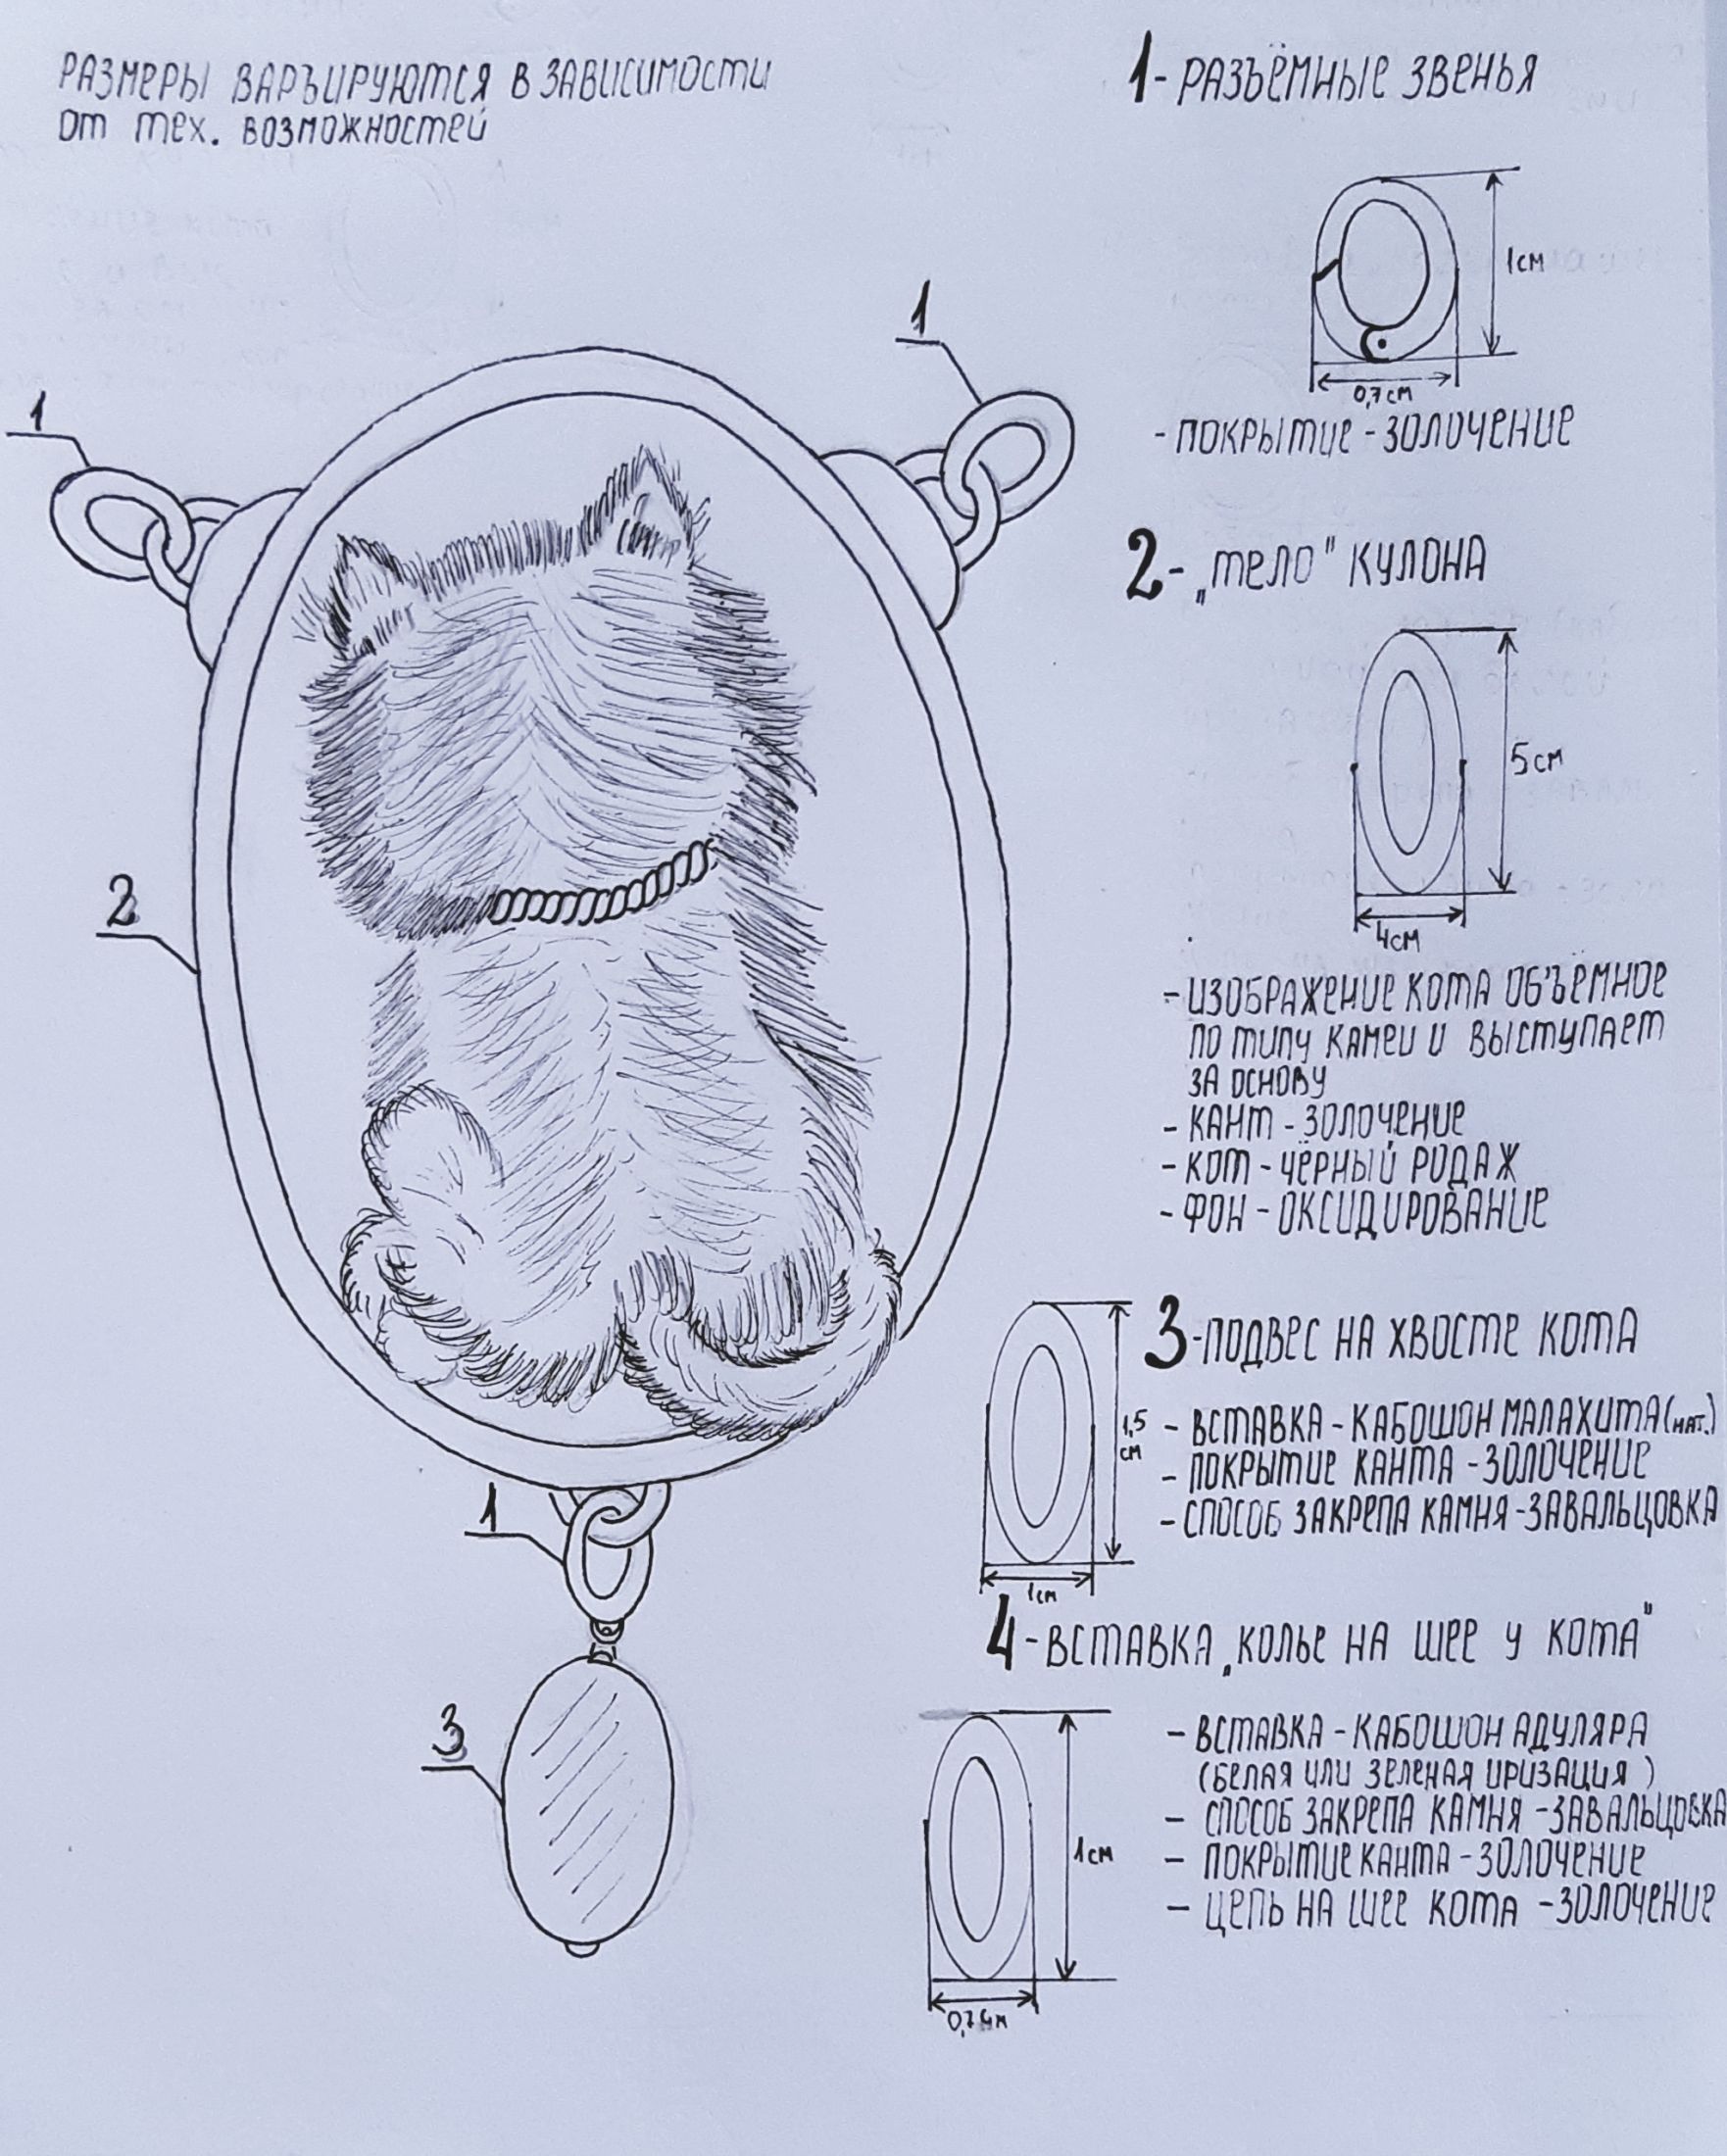 РАЗМЕРЫ ВАРЪИРУЮТСЯ В ЗАВИСИМОСТИ
ОТ ТЕХ. ВОЗМОЖНОСТЕЙ
1
1
2
1
3
1- РАЗЪЁМНЫЕ ЗВЕНЬЯ
1см
0,7см
- ПОКРЫТИЕ - ЗОЛОЧЕНИЕ
2- „ТЕЛО" КУЛОНА
5см
4см
- ИЗОБРАЖЕНИЕ КОТА ОБЪЁМНОЕ
ПО ТИПУ КАМЕИ И ВЫСТУПАЕТ
ЗА ОСНОВУ
- КАНТ - ЗОЛОЧЕНИЕ
- КОТ - ЧЁРНЫЙ РОДАЖ
- ФОН - ОКСИДИРОВАНИЕ
3-ПОДВЕС НА ХВОСТЕ КОТА
1,5
см
1см
- ВСТАВКА - КАБОШОН МАЛАХИТА (НАТ.)
- ПОКРЫТИЕ КАНТА - ЗОЛОЧЕНИЕ
- СПОСОБ ЗАКРЕПА КАМНЯ - ЗАВАЛЬЦОВКА
4-ВСТАВКА „КОЛЬЕ НА ШЕЕ У КОТА"
1см
- ВСТАВКА - КАБОШОН АДУЛЯРА
(БЕЛАЯ ИЛИ ЗЕЛЕНАЯ ИРИЗАЦИЯ)
- СПОСОБ ЗАКРЕПА КАМНЯ - ЗАВАЛЬЦОВКА
- ПОКРЫТИЕ КАНТА - ЗОЛОЧЕНИЕ
- ЦЕПЬ НА ШЕЕ КОТА - ЗОЛОЧЕНИЕ